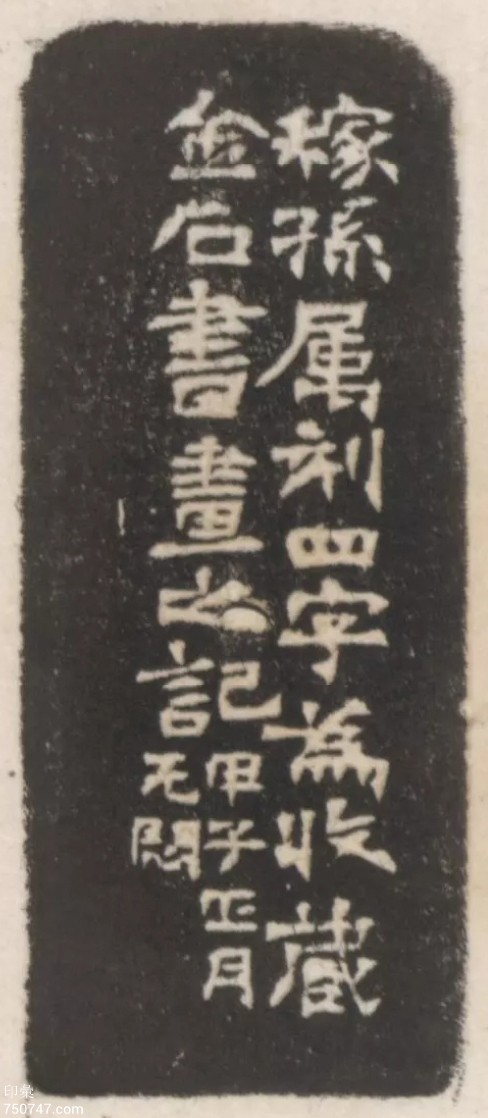 稼孫属刻四字為收蔵
金石書畫之記
甲子正月
无悶
印彙
750747.com